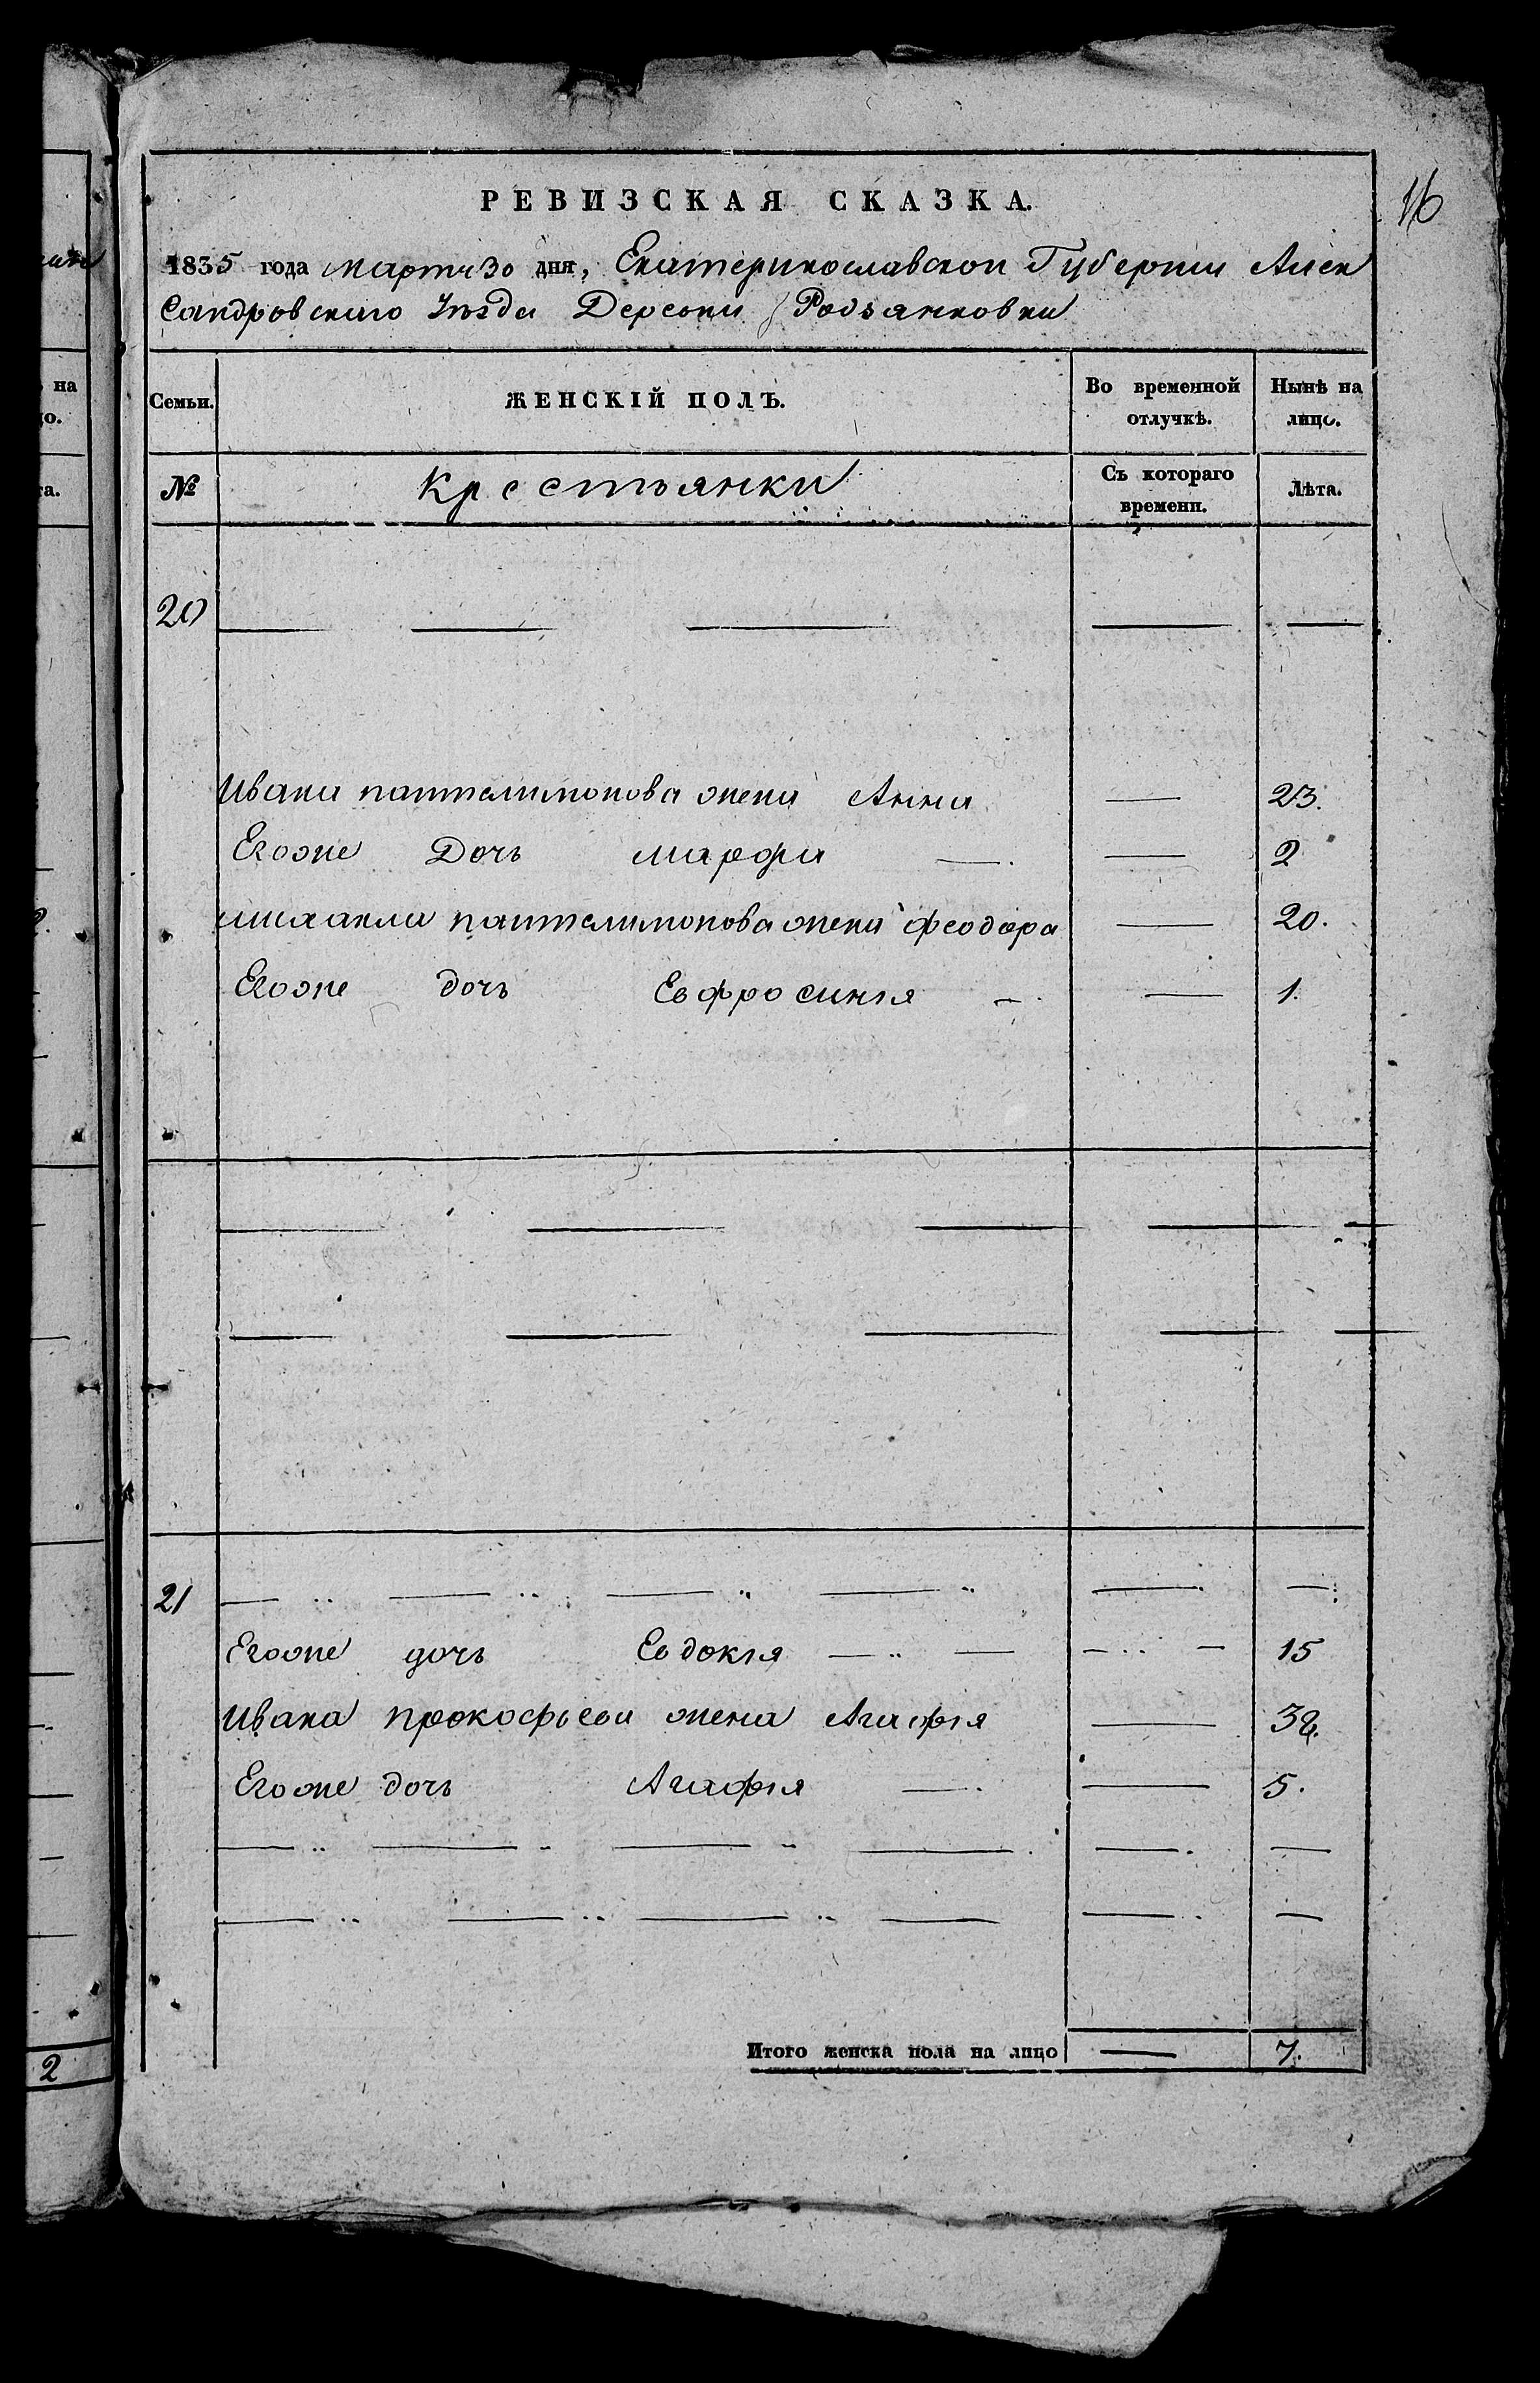 16
РЕВИЗСКАЯ СКАЗКА.
1835 года марта 30 дня, Екатеринославской Губернии Алек
сандровского Уезда Деревни Родзянковки
Семьи. ЖЕНСКІЙ ПОЛЪ. Во временной отлучкѣ. Нынѣ на лицо.
№ Крестьянки Съ котораго времени. Лѣта.
20
Ивана пантелимонова жена Анна 23.
Егоже Дочь марфа 2
михаила пантелимонова жена феодора 20.
Егоже дочь Евфросинія 1.
21
Егоже дочь Евдокія 15
Ивана прокофьева жена Агафія 38.
Егоже дочь Агафія 5.
Итого женска пола на лицо 7.
на
о.
а.
2